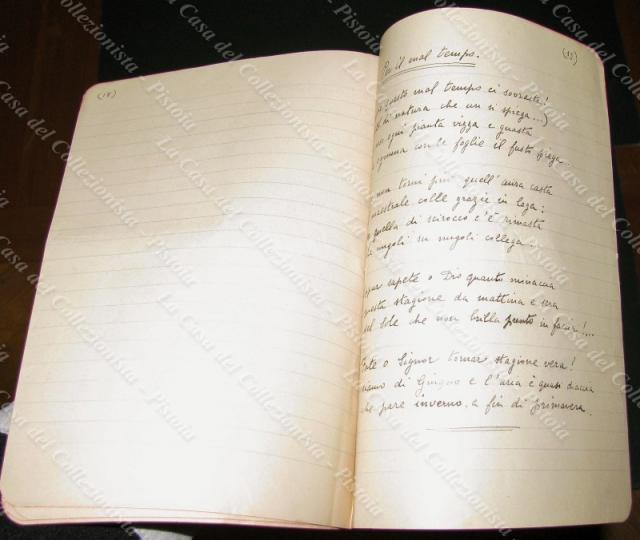 (18)
(19)
Per il mal tempo.
Questo mal tempo ci sovrasta!
di natura che un si spiega...)
ogni pianta vizza e guasta
con le foglie il fusto piega...
non torni più quell'aura casta
maestrale colle grazie in lega;
quella di scirocco c'è rimasta
nugoli su nugoli collega
sapete o Dio quanto minaccia
questa stagione da mattina a sera
sol Sole che non brilla punto in faccia!...
Fate o Signor tornar stagione vera!
siamo di Giugno e l'aria è quasi diaccia
che pare inverno, a fin di primavera.
La Casa del Collezionista - Pistoia